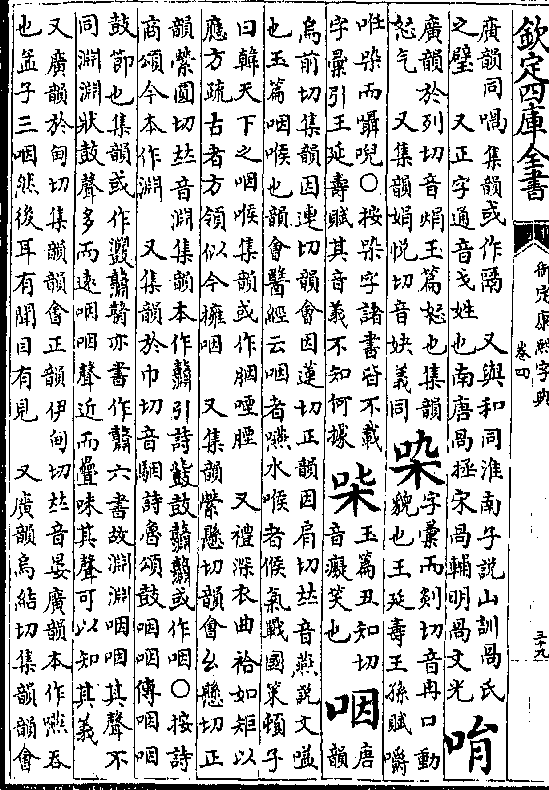 欽定四庫全書
御定康熙字典
卷四
三十九
廣韻同喎集韻或作䫏 又與和同淮南子說山訓咼氏
之璧 又正字通音戈姓也南唐咼拯宋咼輔明咼文光 哨
廣韻於列切音焆玉篇怒也集韻
怒气 又集韻娟悅切音妜義同 㕹 字彙而剡切音冉口動
貌也王延壽王孫賦嚼
唯㕹而囁唲○按㕹字諸書皆不載
字彙引王延壽賦其音義不知何據 㘜 玉篇丑知切
音癡笑也 咽 唐韻
烏前切集韻因連切韻會因蓮切正韻因肩切𠀤音燕說文嗌
也玉篇咽喉也韻會醫經云咽者嚥水喉者候氣戰國策頓子
曰韓天下之咽喉集韻或作胭㖶𦜆 又禮深衣曲袷如矩以
應方疏古者方領似今擁咽 又集韻縈懸切韻會幺懸切正
韻縈圓切𠀤音淵集韻本作鼝引詩鼖鼓鼝鼝或作咽○按詩
商頌今本作淵 又集韻於巾切音駰詩魯頌鼓咽咽傳咽咽
鼓節也集韻或作鼘亦書作鼝六書故淵淵咽咽其聲不
同淵淵狀鼓聲多而遠咽咽聲近而疊味其聲可以知其義
又廣韻於甸切集韻韻會正韻伊甸切𠀤音宴廣韻本作嚥吞
也孟子三咽然後耳有聞目有見 又廣韻烏結切集韻韻會